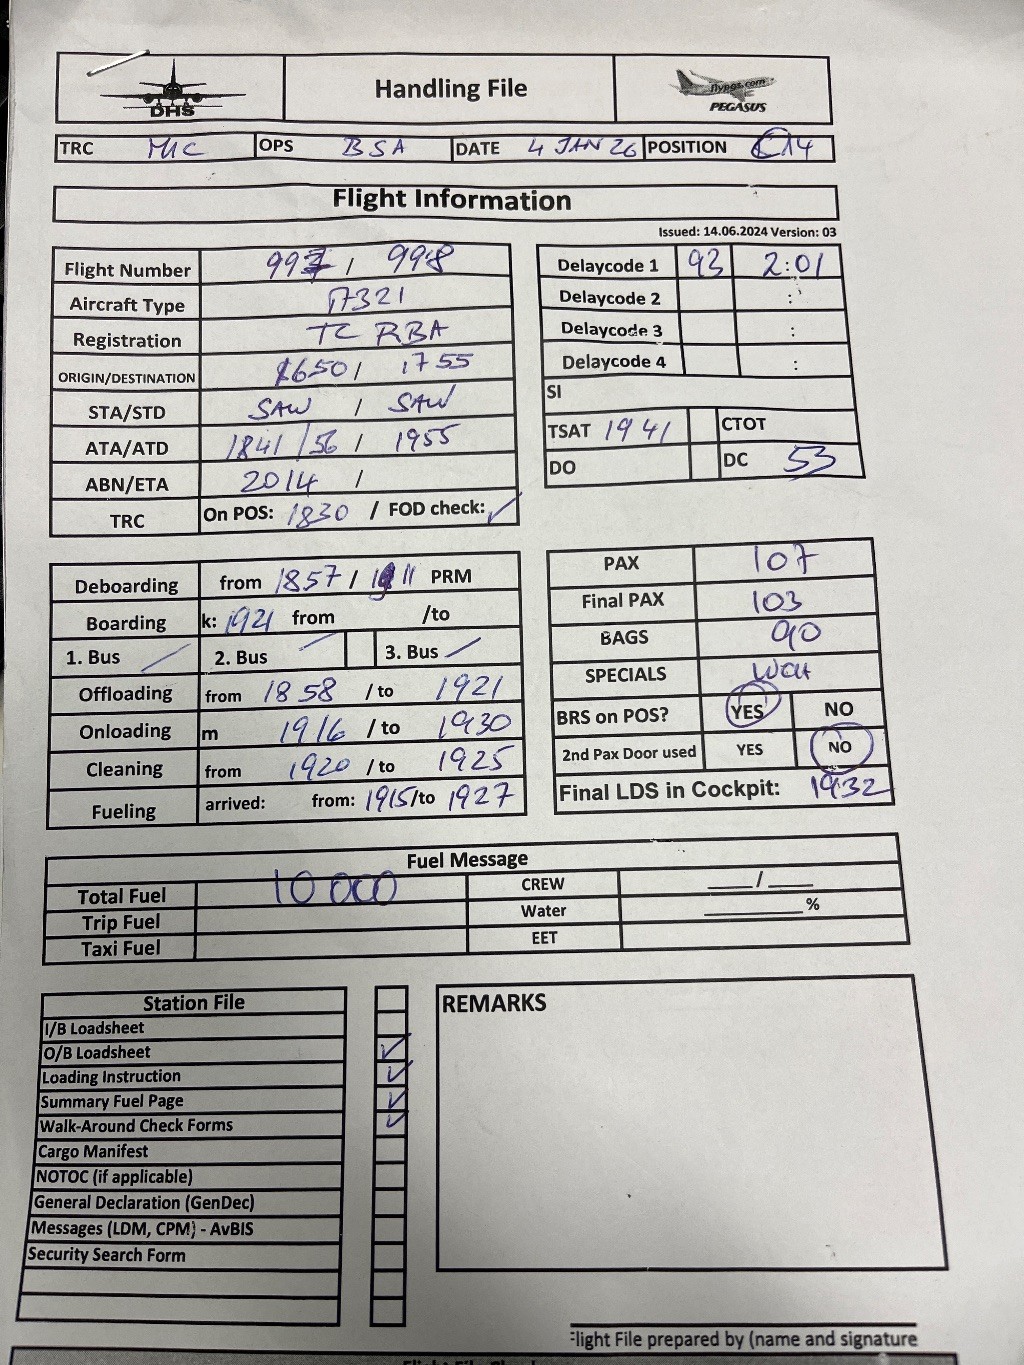 DHS
Handling File
flypgs.com
PEGASUS
TRC MIC OPS BSA DATE 4 JAN 26 POSITION C14
Flight Information
Issued: 14.06.2024 Version: 03
Flight Number 997 / 998
Aircraft Type A321
Registration TC RBA
ORIGIN/DESTINATION 1650 / 1755
STA/STD SAW / SAW
ATA/ATD 1841 / 56 / 1955
ABN/ETA 2014 /
TRC On POS: 1830 / FOD check: ✓
Delaycode 1 93 2:01
Delaycode 2 :
Delaycode 3 :
Delaycode 4 :
SI
TSAT 1941 CTOT
DO DC 53
Deboarding from 1857 / 1911 PRM
Boarding k: 1921 from /to
1. Bus / 2. Bus / 3. Bus /
Offloading from 1858 / to 1921
Onloading m 1916 / to 1930
Cleaning from 1920 / to 1925
Fueling arrived: from: 1915 /to 1927
PAX 107
Final PAX 103
BAGS 90
SPECIALS WCH
BRS on POS? YES NO
2nd Pax Door used YES NO
Final LDS in Cockpit: 1932
Fuel Message
Total Fuel 10 000 CREW ___/___
Trip Fuel Water ______%
Taxi Fuel EET
Station File
I/B Loadsheet
O/B Loadsheet ✓
Loading Instruction ✓
Summary Fuel Page ✓
Walk-Around Check Forms ✓
Cargo Manifest
NOTOC (if applicable)
General Declaration (GenDec)
Messages (LDM, CPM) - AvBIS
Security Search Form
REMARKS
Flight File prepared by (name and signature